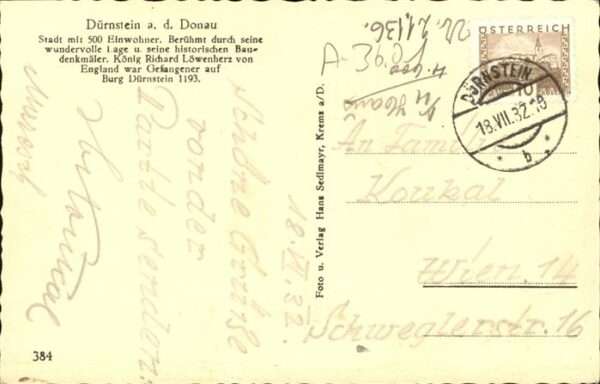 Dürnstein a. d. Donau
Stadt mit 500 Einwohner. Berühmt durch seine
wundervolle Lage u. seine historischen Bau-
denkmäler. König Richard Löwenherz von
England war Gefangener auf
Burg Dürnstein 1193.
18.VII.32.
Schöne Grüße
von der
Partie senden
384
Foto u. Verlag Hans Sedlmayr, Krems a/D.
ÖSTERREICH
10
DÜRNSTEIN
18.VII.32
* b *
An Familie
Koukal
Wien. 14
Schweglerstr. 16